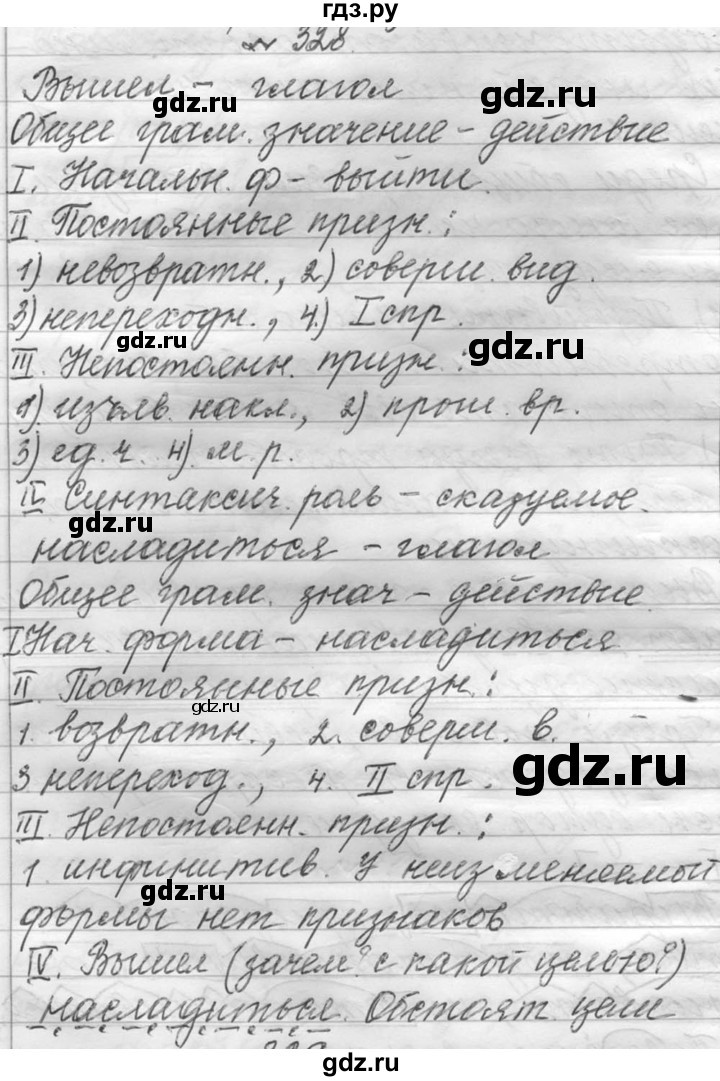 гдз.ру
№ 328.
Вышел – глагол
gdz.ru gdz.ru
Общее грам. значение – действие
I. Начальн. ф – выйти.
gdz.ru gdz.ru
II. Постоянные призн.:
1) невозвратн., 2) соверш. вид.
3) непереходн., 4.) I спр.
gdz.ru gdz.ru
III. Непостоянн. призн.:
1) изъяв. накл., 2) прош. вр.
3) ед. ч. 4) м. р.
IV Синтаксич. роль – сказуемое.
gdz.ru
насладиться – глагол
Общее грам. знач – действие.
I Нач. форма – насладиться
II. Постоянные призн.:
gdz.ru
1. возвратн., 2. соверш. в.
gdz.ru
3 непереход., 4. II спр.
III. Непостоянн. призн.:
1. инфинитив. У неизменяемой
gdz.ru
формы нет признаков
IV. Вышел (зачем? с какой целью?)
gdz.ru
насладиться. Обстоят. цели
gdz.ru